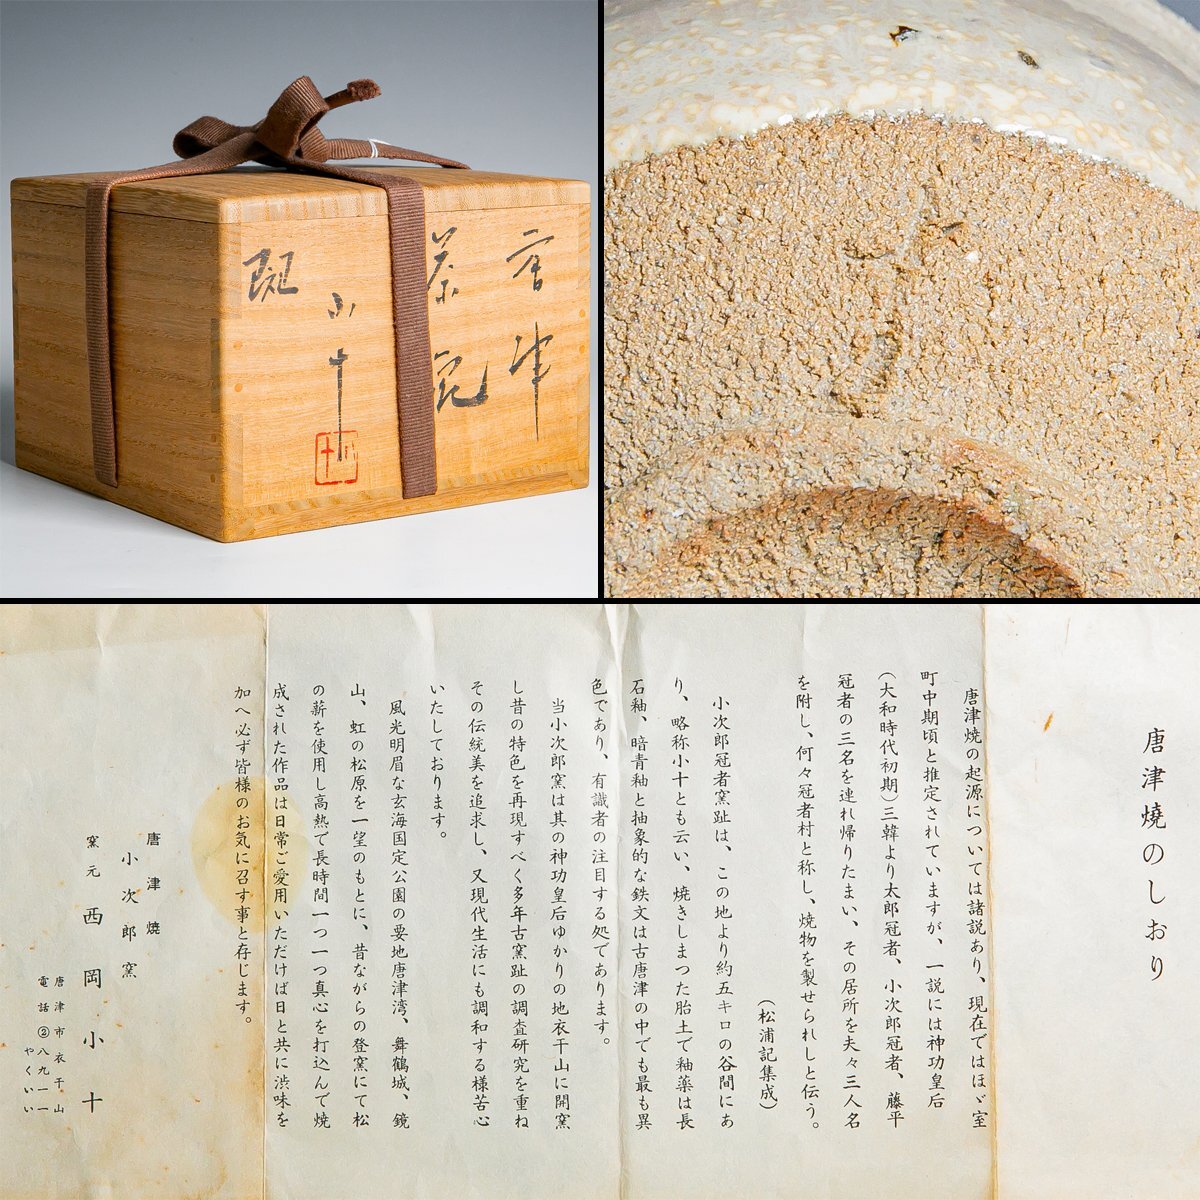 唐津
茶碗
小十
斑
唐津燒のしおり
唐津焼の起源については諸説あり、現在ではほゞ室
町中期頃と推定されていますが、一説には神功皇后
(大和時代初期)三韓より太郎冠者、小次郎冠者、藤平
冠者の三名を連れ帰りたまい、その居所を夫々三人名
を附し、何々冠者村と称し、焼物を製せられしと伝う。
(松浦記集成)
小次郎冠者窯趾は、この地より約五キロの谷間にあ
り、略称小十とも云い、焼きしまつた胎土で釉薬は長
石釉、暗青釉と抽象的な鉄文は古唐津の中でも最も異
色であり、有識者の注目する処であります。
当小次郎窯は其の神功皇后ゆかりの地衣干山に開窯
し昔の特色を再現すべく多年古窯趾の調査研究を重ね
その伝統美を追求し、又現代生活にも調和する様苦心
いたしております。
風光明眉な玄海国定公園の要地唐津湾、舞鶴城、鏡
山、虹の松原を一望のもとに、昔ながらの登窯にて松
の薪を使用し高熱で長時間一つ一つ真心を打込んで焼
成された作品は日常ご愛用いただけば日と共に渋味を
加へ必ず皆様のお気に召す事と存じます。
唐津焼
小次郎窯
窯元 西岡小十
唐津市衣干山
電話②八九一一
やくいい